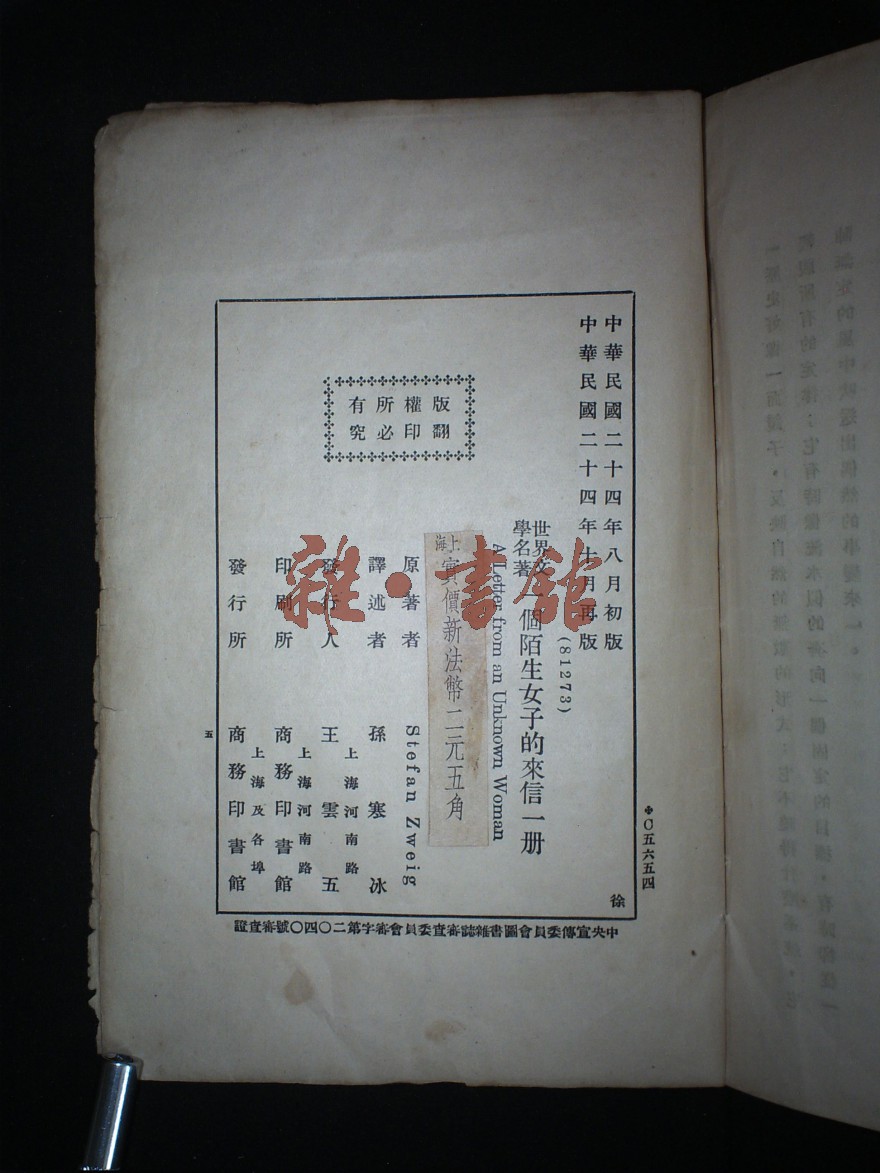 中華民國二十四年八月初版
中華民國二十四年十月再版
(81273)
世界文學名著
一個陌生女子的來信一册
A Letter from an Unknown Woman
上海實價新法幣二元五角
原著者 Stefan Zweig
譯述者 孫寒冰
發行人 王雲五
上海河南路
印刷所 商務印書館
上海河南路
發行所 商務印書館
上海及各埠
版權所有
翻印必究
五
＊〇五六五四
徐
中央宣傳委員會圖書雜誌審查委員會審字第二〇四〇號審查證
雜·書館